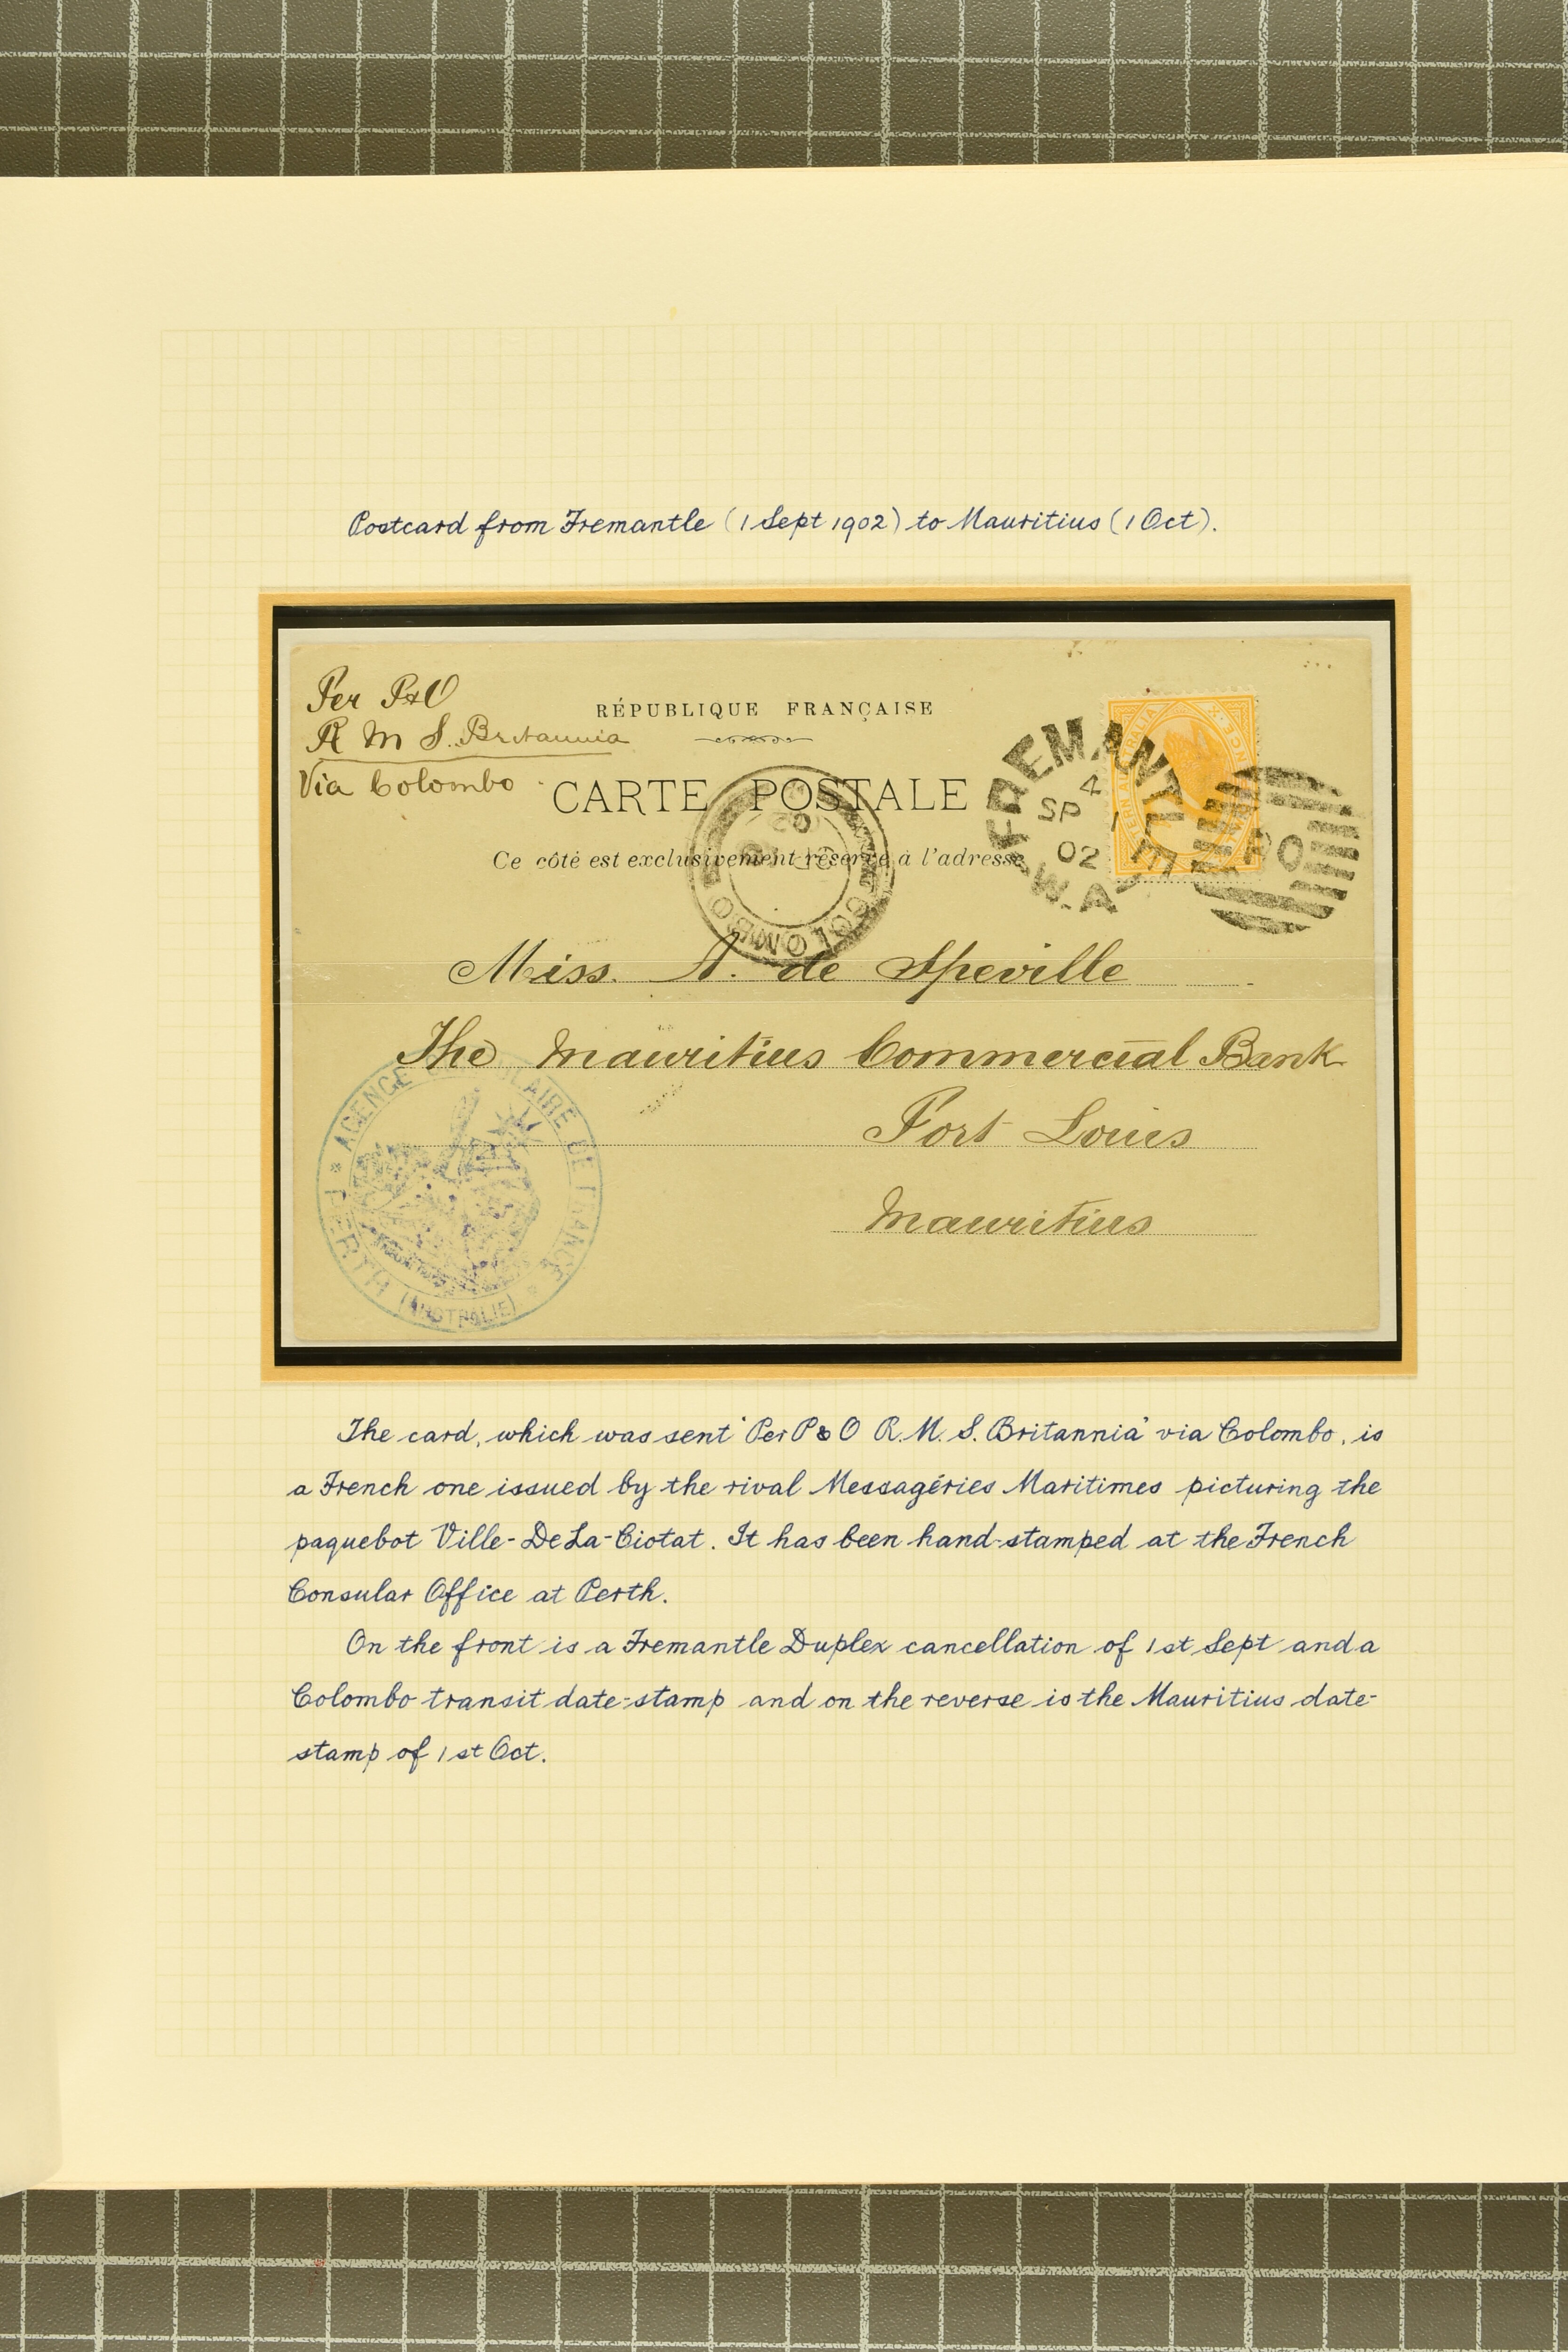 Postcard from Fremantle (1 Sept 1902) to Mauritius (1 Oct).
Per P&O
R M S. Britannia
Via Colombo
RÉPUBLIQUE FRANÇAISE
CARTE POSTALE
Ce côté est exclusivement réservé à l'adresse
FREMANTLE
4
SP 1
02
W.A
PO
COLOMBO
Miss. A. de Speville
The Mauritius Commercial Bank
Port Louis
Mauritius
AGENCE CONSULAIRE DE FRANCE
PERTH (AUSTRALIE)
The card, which was sent 'Per P & O R.M.S. Britannia' via Colombo, is
a French one issued by the rival Messagéries Maritimes picturing the
paquebot Ville-De La-Ciotat. It has been hand-stamped at the French
Consular Office at Perth.
On the front is a Fremantle Duplex cancellation of 1st Sept and a
Colombo transit date-stamp and on the reverse is the Mauritius date-
stamp of 1st Oct.